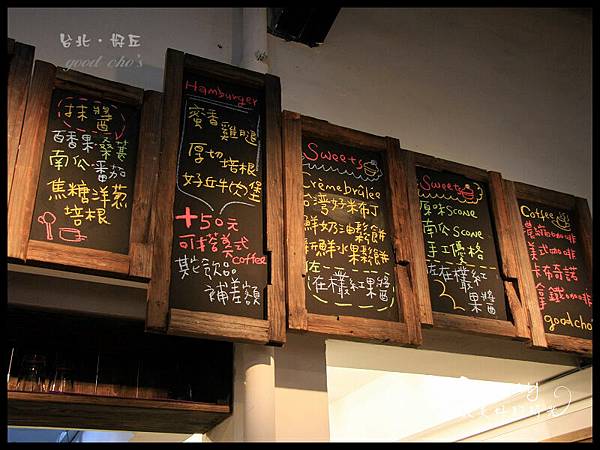 台北·好丘
good cho's
抹醬
百香果·桑葚
南瓜·番茄
焦糖洋蔥
培根
Hamburger
蜜香雞腿
厚切培根
好丘牛肉堡
+50元
可搭美式
coffee
其他飲品
補差額
Sweets
Crème brûlée
台灣好米布丁
鮮奶油鬆餅
新鮮水果鬆餅
左
在欉紅果醬
Sweets
原味scone
南瓜scone
手工優格
在欉紅
果醬
Coffee
義式咖啡
美式咖啡
卡布奇諾
拿鐵咖啡
good cho's